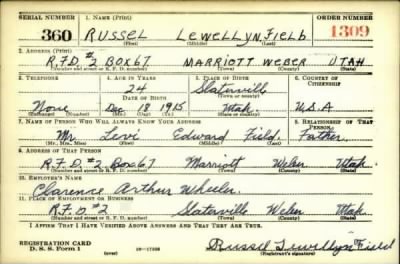 SERIAL NUMBER 1. NAME (Print) ORDER NUMBER
360 RUSSEL LEWELLYN FIELD 1309
(First) (Middle) (Last)
2. ADDRESS (Print)
R.F.D. #2 BOX 67 MARRIOTT WEBER UTAH
(Number and street or R. F. D. number) (Town) (County) (State)
3. TELEPHONE 4. AGE IN YEARS 5. PLACE OF BIRTH 6. COUNTRY OF CITIZENSHIP
24 Slaterville
DATE OF BIRTH (Town or county)
None Dec 18 1915 Utah U.S.A
(Exchange) (No.) (Mo.) (Day) (Yr.) (State or country)
7. NAME OF PERSON WHO WILL ALWAYS KNOW YOUR ADDRESS 8. RELATIONSHIP OF THAT PERSON
Mr Levi Edward Field Father
(Mr., Mrs., Miss) (First) (Middle) (Last)
9. ADDRESS OF THAT PERSON
R.F.D. #2 Box 67 Marriott Weber Utah
(Number and street or R. F. D. number) (Town) (County) (State)
10. EMPLOYER'S NAME
Clarence Arthur Wheeler
11. PLACE OF EMPLOYMENT OR BUSINESS
R.F.D #2 Slaterville Weber Utah
(Number and street or R. F. D. number) (Town) (County) (State)
I AFFIRM THAT I HAVE VERIFIED ABOVE ANSWERS AND THAT THEY ARE TRUE.
REGISTRATION CARD
D. S. S. Form 1 (over) Russel Lewellyn Field
(Registrant's signature)